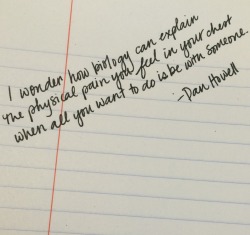 I wonder how biology can explain
the physical pain you feel in your chest
when all you want to do is be with someone.
-Dan Howell